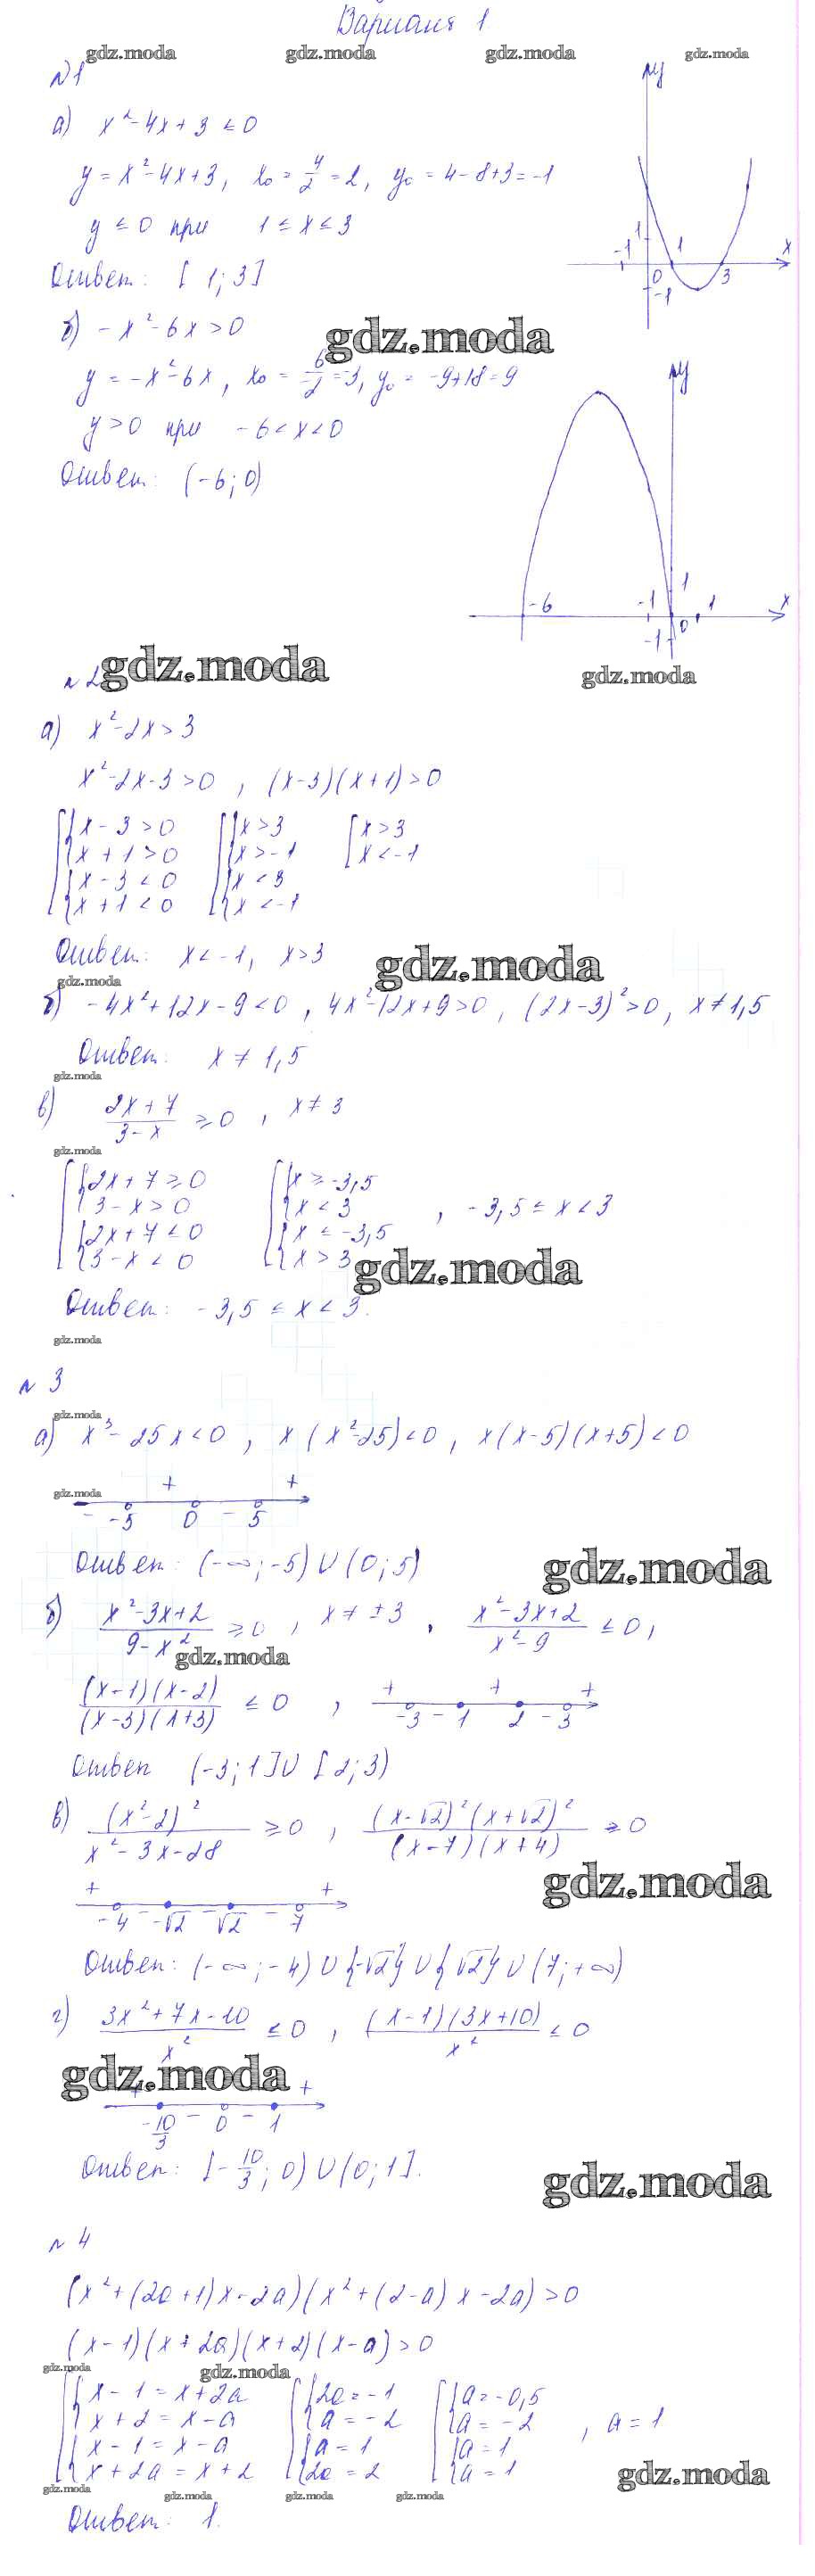 Вариант 1
gdz.moda gdz.moda gdz.moda gdz.moda
№1
а) x² - 4x + 3 ≤ 0
y = x² - 4x + 3, x₀ = 4/2 = 2, y₀ = 4 - 8 + 3 = -1
y ≤ 0 при 1 ≤ x ≤ 3
Ответ: [1; 3]
y
1
-1 0 1 3 x
-1
б) -x² - 6x > 0
gdz.moda
y = -x² - 6x, x₀ = 6/-2 = -3, y₀ = -9 + 18 = 9
y > 0 при -6 < x < 0
Ответ: (-6; 0)
y
1
-6 -1 0 1 x
-1
№2
gdz.moda gdz.moda
а) x² - 2x > 3
x² - 2x - 3 > 0, (x - 3)(x + 1) > 0
x - 3 > 0 x > 3 x > 3
x + 1 > 0 x > -1 x < -1
x - 3 < 0 x < 3
x + 1 < 0 x < -1
Ответ: x < -1, x > 3
gdz.moda
gdz.moda
б) -4x² + 12x - 9 < 0, 4x² - 12x + 9 > 0, (2x - 3)² > 0, x ≠ 1,5
Ответ: x ≠ 1,5
gdz.moda
в) (2x + 7)/(3 - x) ≥ 0, x ≠ 3
gdz.moda
2x + 7 ≥ 0 x ≥ -3,5
3 - x > 0 x < 3 , -3,5 ≤ x < 3
2x + 7 ≤ 0 x ≤ -3,5
3 - x < 0 x > 3
gdz.moda
Ответ: -3,5 ≤ x < 3.
gdz.moda
№3
gdz.moda
а) x³ - 25x < 0, x(x² - 25) < 0, x(x - 5)(x + 5) < 0
gdz.moda
+ +
- -5 0 - 5
Ответ: (-∞; -5) ∪ (0; 5)
gdz.moda
б) (x² - 3x + 2)/(9 - x²) ≥ 0, x ≠ ±3, (x² - 3x + 2)/(x² - 9) ≤ 0,
gdz.moda
(x - 1)(x - 2)/(x - 3)(x + 3) ≤ 0,
+ + +
-3 - 1 2 - 3
Ответ (-3; 1] ∪ [2; 3)
в) (x² - 2)²/(x² - 3x - 28) ≥ 0, (x - √2)²(x + √2)²/(x - 7)(x + 4) ≥ 0
gdz.moda
+ +
-4 - -√2 - √2 - 7
Ответ: (-∞; -4) ∪ {-√2} ∪ {√2} ∪ (7; +∞)
г) (3x² + 7x - 10)/x² ≤ 0, (x - 1)(3x + 10)/x² ≤ 0
gdz.moda
+ +
-10/3 - 0 - 1
Ответ: [-10/3; 0) ∪ (0; 1].
gdz.moda
№4
(x² + (2a + 1)x - 2a)(x² + (2 - a)x - 2a) > 0
(x - 1)(x + 2a)(x + 2)(x - a) > 0
gdz.moda gdz.moda
x - 1 = x + 2a 2a = -1 a = -0,5
x + 2 = x - a a = -2 a = -2 , a = 1
x - 1 = x - a a = 1 a = 1
x + 2a = x + 2 2a = 2 a = 1
gdz.moda
gdz.moda gdz.moda gdz.moda gdz.moda
Ответ: 1.